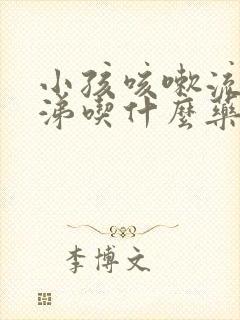 小孩咳嗽流
涕喫什麼藥
李博文